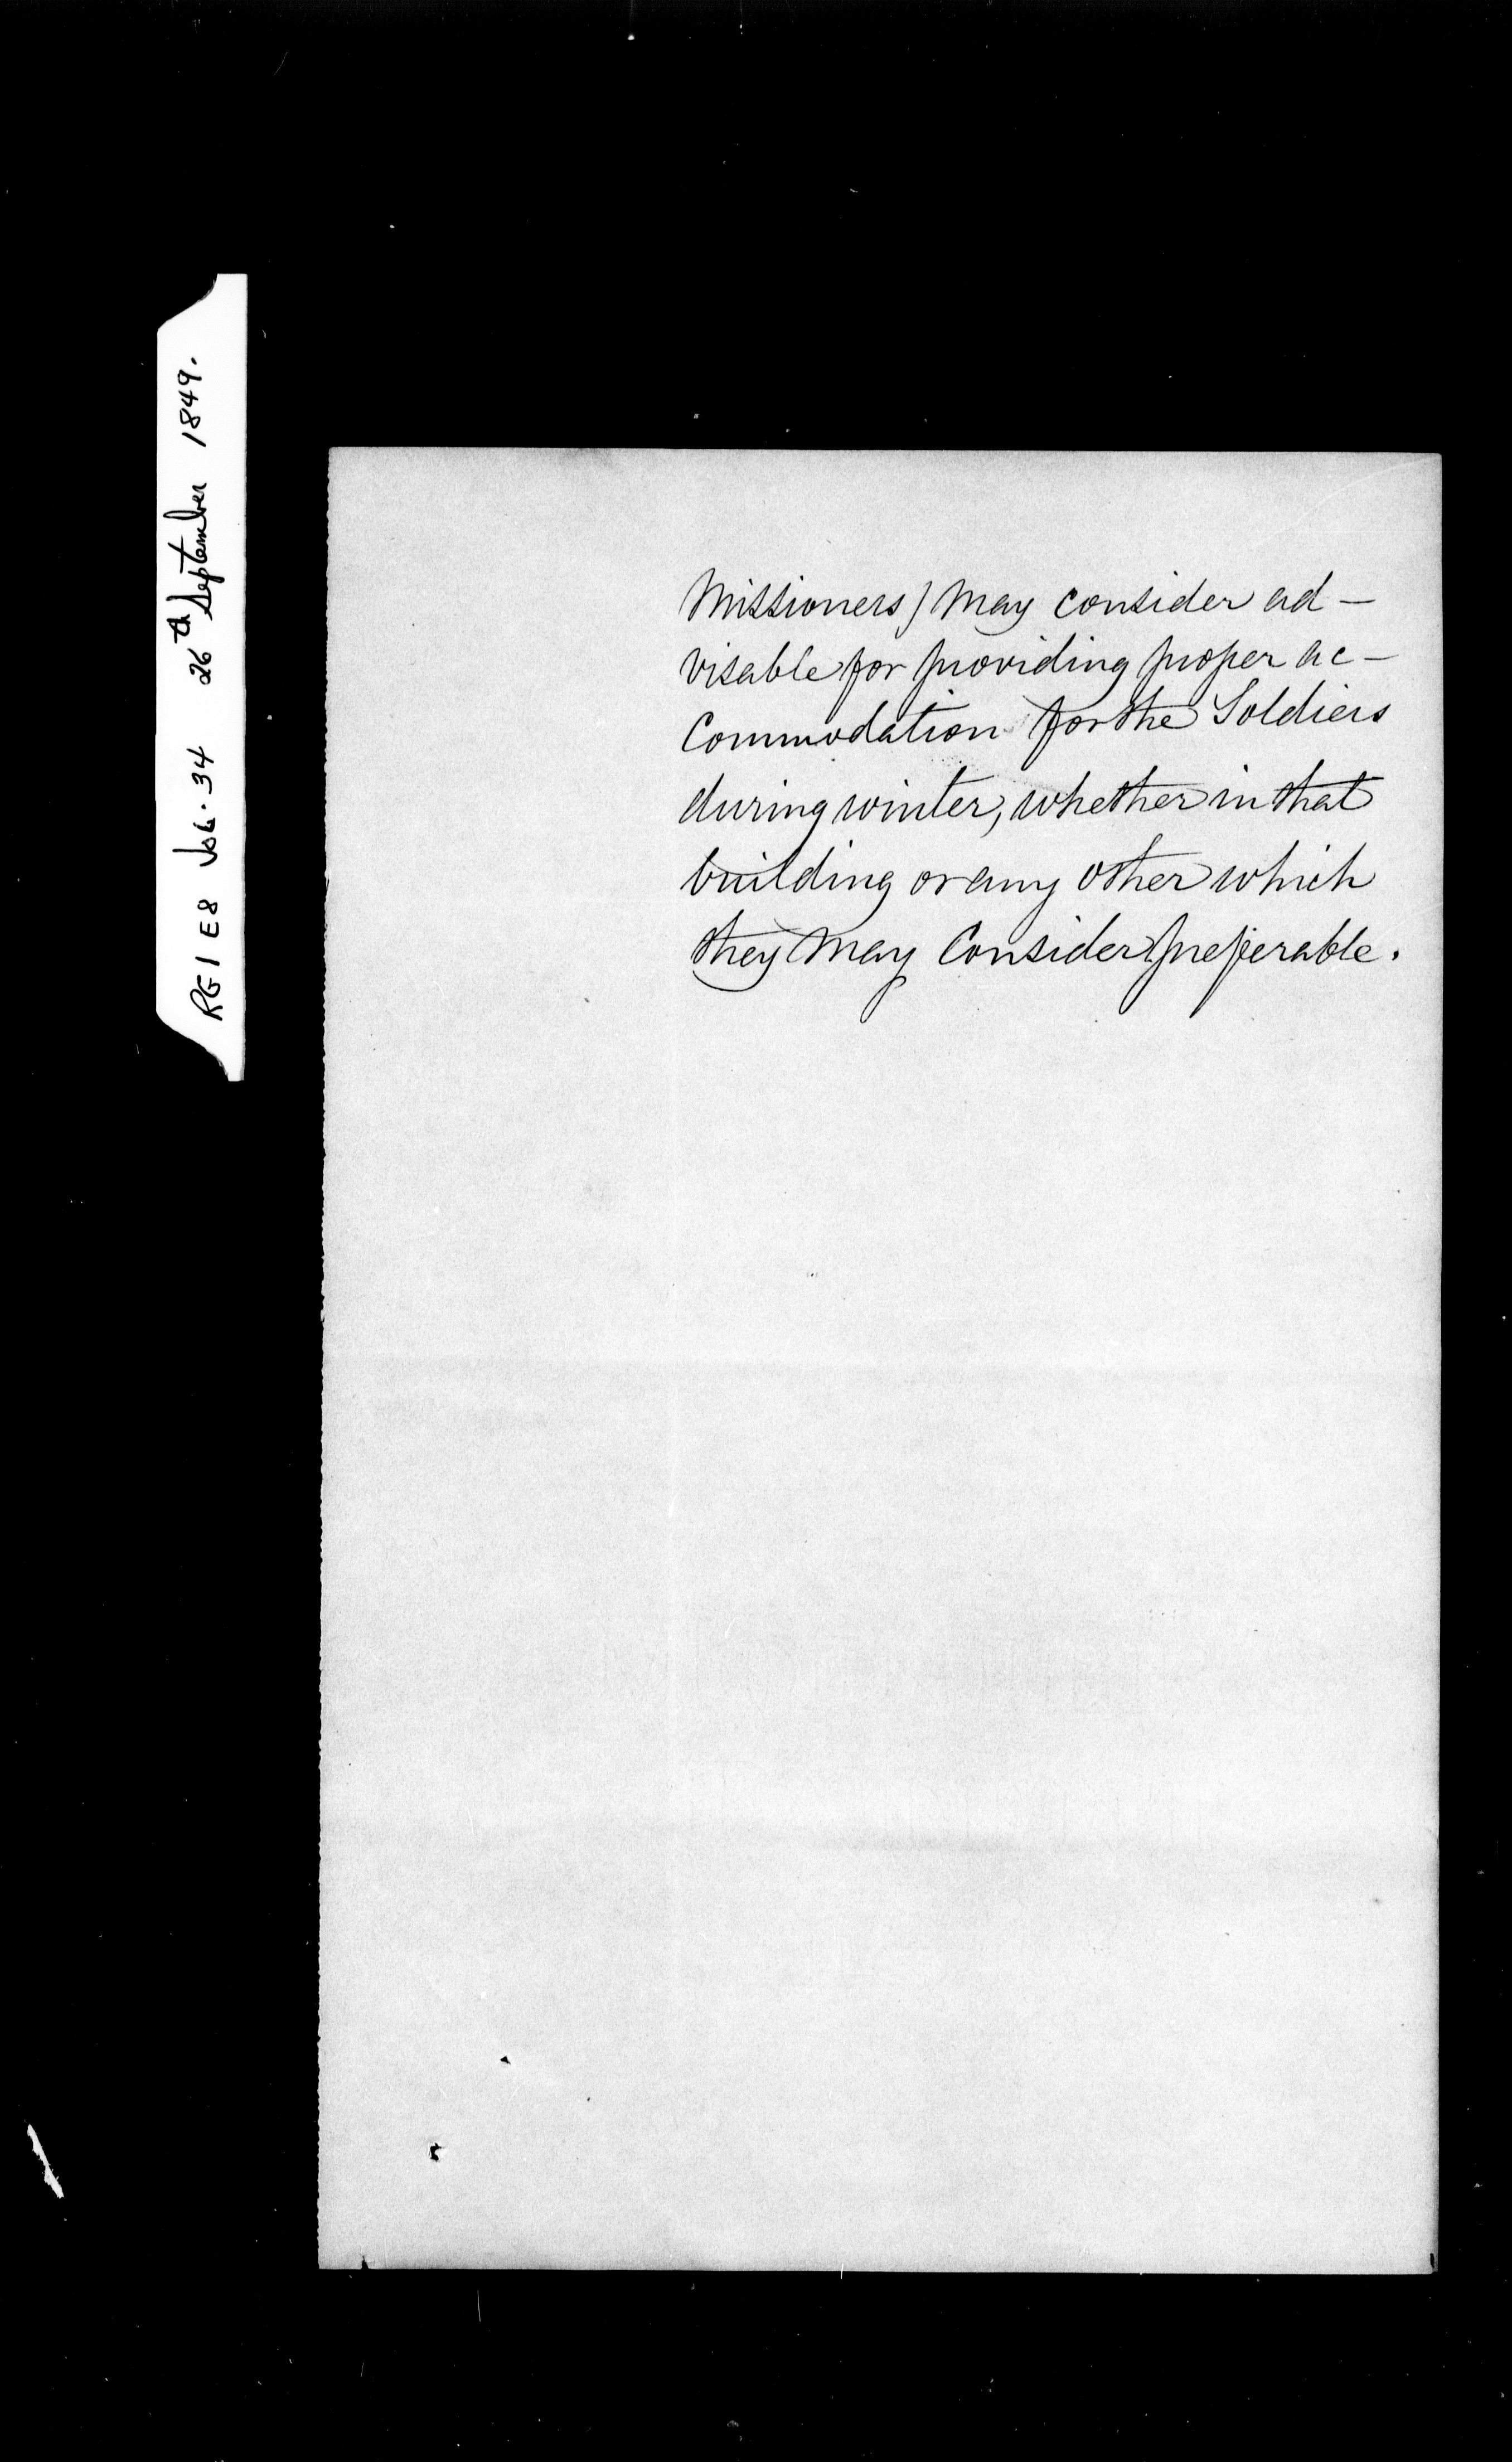 RG1 E8 Vol. 34 26th September 1849.
missioners) may consider ad-
visable for providing proper ac-
commodation for the Soldiers
during winter, whether in that
building or any other which
they may consider preferable.